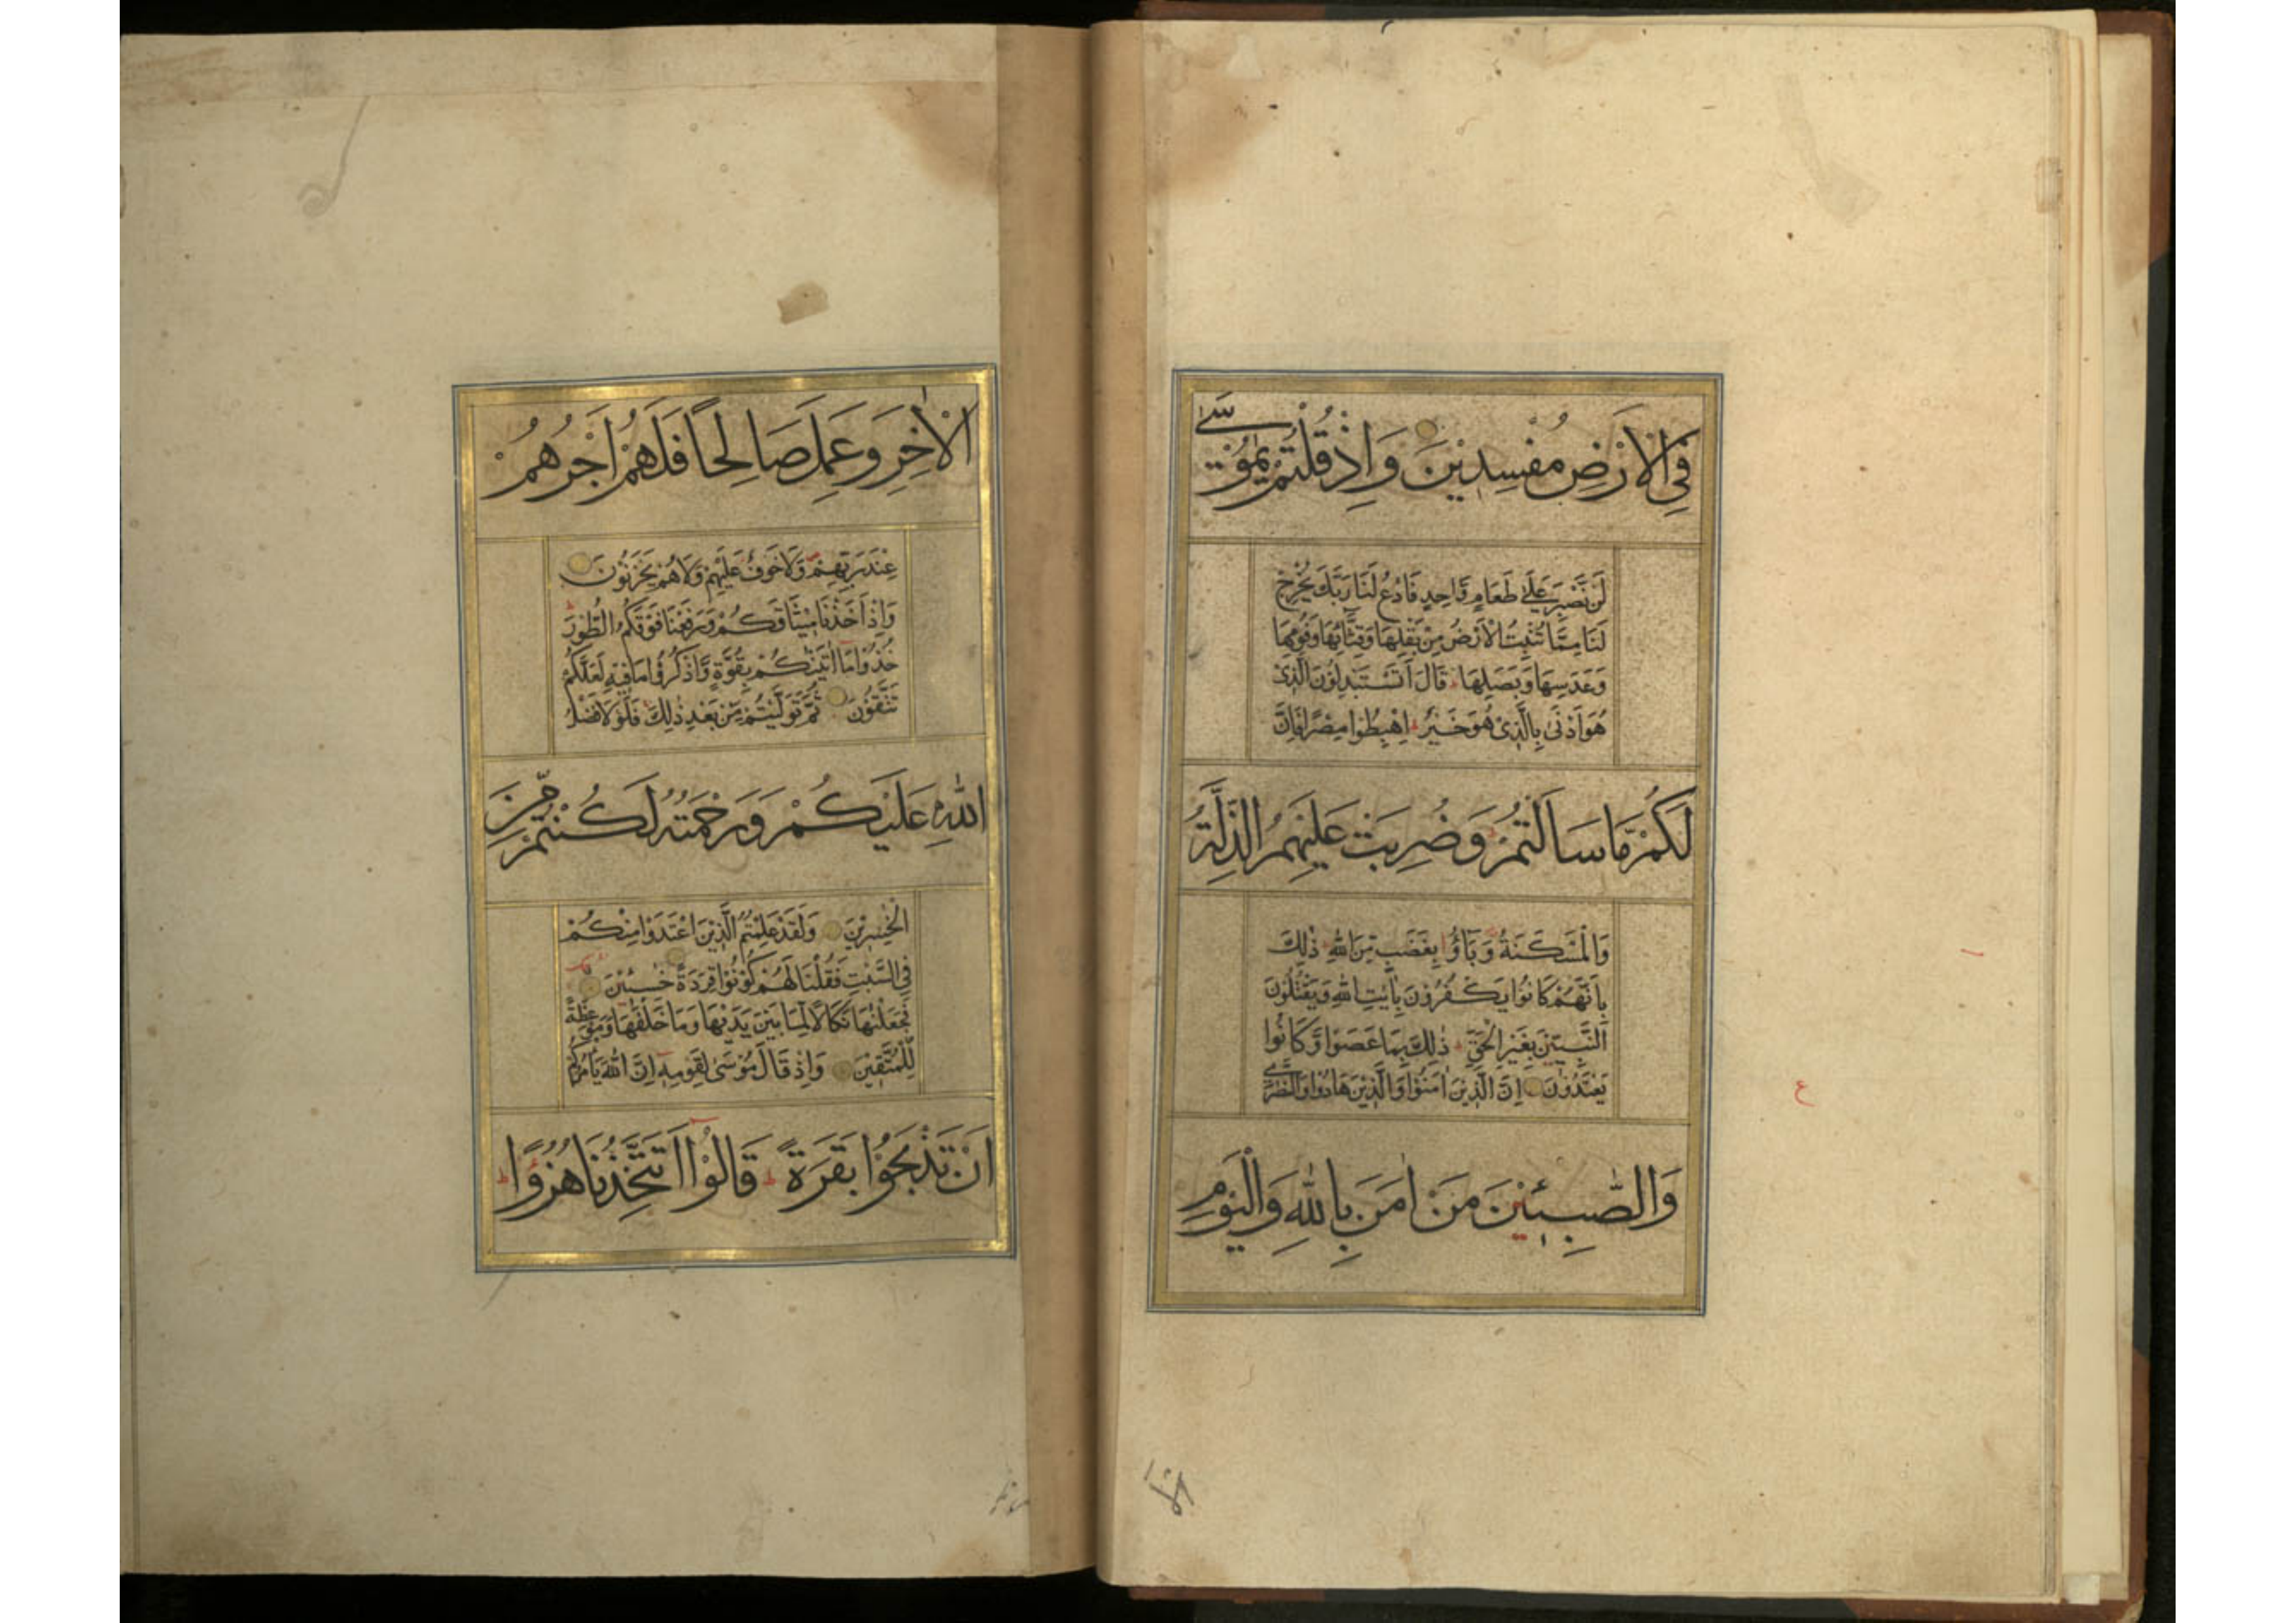 فِي الْاَرْضِ مُفْسِدِيْنَ وَاِذْ قُلْتُمْ يٰمُوْسٰى
لَنْ نَّصْبِرَ عَلٰى طَعَامٍ وَّاحِدٍ فَادْعُ لَنَا رَبَّكَ يُخْرِجْ
لَنَا مِمَّا تُنْبِتُ الْاَرْضُ مِنْ بَقْلِهَا وَقِثَّائِهَا وَفُوْمِهَا
وَعَدَسِهَا وَبَصَلِهَا ط قَالَ اَتَسْتَبْدِلُوْنَ الَّذِيْ
هُوَ اَدْنٰى بِالَّذِيْ هُوَ خَيْرٌ ط اِهْبِطُوْا مِصْرًا فَاِنَّ
لَكُمْ مَّا سَاَلْتُمْ ط وَضُرِبَتْ عَلَيْهِمُ الذِّلَّةُ
وَالْمَسْكَنَةُ وَبَآؤُ بِغَضَبٍ مِّنَ اللّٰهِ ط ذٰلِكَ
بِاَنَّهُمْ كَانُوْا يَكْفُرُوْنَ بِاٰيٰتِ اللّٰهِ وَيَقْتُلُوْنَ
النَّبِيّٖنَ بِغَيْرِ الْحَقِّ ط ذٰلِكَ بِمَا عَصَوْا وَّكَانُوْا
يَعْتَدُوْنَ اِنَّ الَّذِيْنَ اٰمَنُوْا وَالَّذِيْنَ هَادُوْا وَالنَّصٰرٰى
وَالصّٰبِـِٕيْنَ مَنْ اٰمَنَ بِاللّٰهِ وَالْيَوْمِ
ع
الْاٰخِرِ وَعَمِلَ صَالِحًا فَلَهُمْ اَجْرُهُمْ
عِنْدَ رَبِّهِمْ وَلَا خَوْفٌ عَلَيْهِمْ وَلَا هُمْ يَحْزَنُوْنَ
وَاِذْ اَخَذْنَا مِيْثَاقَكُمْ وَرَفَعْنَا فَوْقَكُمُ الطُّوْرَ ط
خُذُوْا مَا اٰتَيْنٰكُمْ بِقُوَّةٍ وَّاذْكُرُوْا مَا فِيْهِ لَعَلَّكُمْ
تَتَّقُوْنَ ثُمَّ تَوَلَّيْتُمْ مِّنْ بَعْدِ ذٰلِكَ فَلَوْلَا فَضْلُ
اللّٰهِ عَلَيْكُمْ وَرَحْمَتُهٗ لَكُنْتُمْ مِّنَ
الْخٰسِرِيْنَ وَلَقَدْ عَلِمْتُمُ الَّذِيْنَ اعْتَدَوْا مِنْكُمْ
فِي السَّبْتِ فَقُلْنَا لَهُمْ كُوْنُوْا قِرَدَةً خٰسِـِٕيْنَ
فَجَعَلْنٰهَا نَكَالًا لِّمَا بَيْنَ يَدَيْهَا وَمَا خَلْفَهَا وَمَوْعِظَةً
لِّلْمُتَّقِيْنَ وَاِذْ قَالَ مُوْسٰى لِقَوْمِهٖ اِنَّ اللّٰهَ يَاْمُرُكُمْ
اَنْ تَذْبَحُوْا بَقَرَةً ط قَالُوْا اَتَتَّخِذُنَا هُزُوًا ط